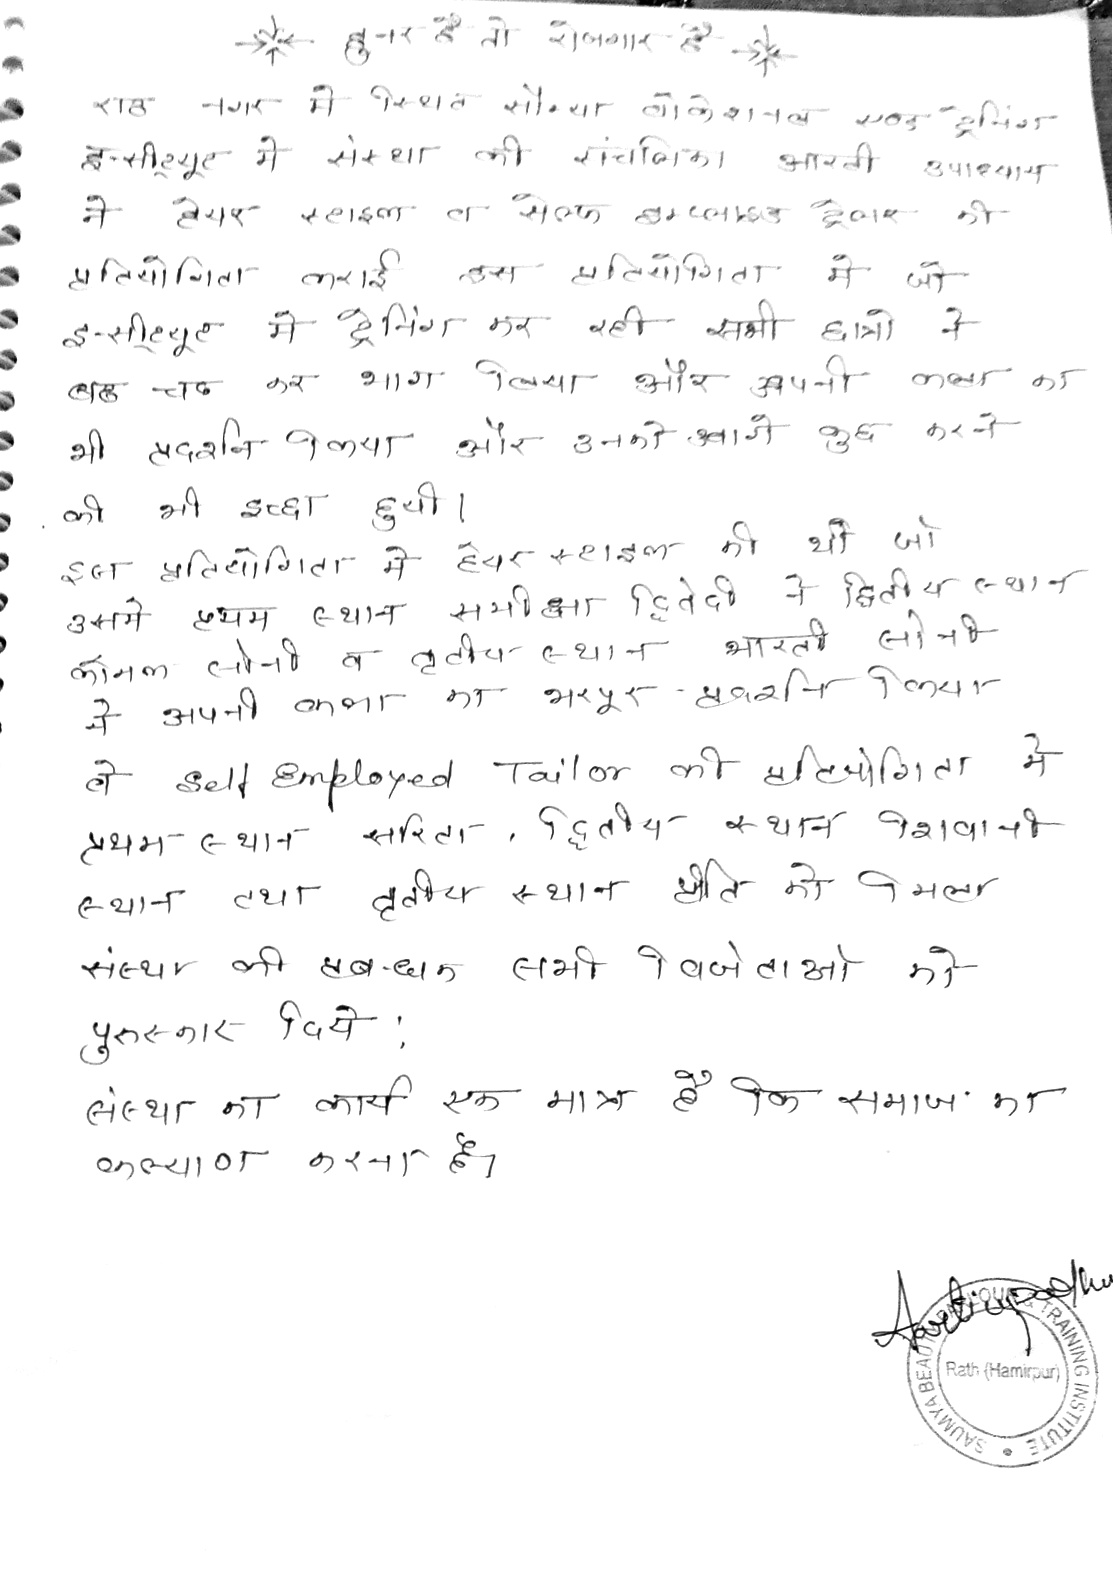 हुनर है तो रोजगार है
राठ नगर मे स्थित सौम्या वोकेशनल एण्ड ट्रेनिंग
इन्सीट्यूट मे संस्था की संचालिका आरती उपाध्याय
ने हेयर स्टाइल व सेल्फ इम्प्लाइड टेलर की
प्रतियोगिता कराई इस प्रतियोगिता मे जो
इन्सीट्यूट मे ट्रेनिंग कर रही सभी छात्रो ने
बढ चढ कर भाग लिया और अपनी कला का
भी प्रदर्शन किया और उनको आगे कुछ करने
की भी इच्छा हुयी।
इस प्रतियोगिता मे हेयर स्टाइल की थी जो
उसमे प्रथम स्थान समीक्षा द्विवेदी ने द्वितीय स्थान
कोमल सोनी व तृतीय स्थान भारती सोनी
ने अपनी कला का भरपूर प्रदर्शन किया
वे Self Employed Tailor की प्रतियोगिता मे
प्रथम स्थान सरिता, द्वितीय स्थान शिवानी
स्थान तथा तृतीय स्थान प्रीति को मिला
संस्था की प्रबन्धक सभी विजेताओ को
पुरुस्कार दिये।
संस्था का कार्य एक मात्र है कि समाज का
कल्याण करना है।
SAUMYA BEAUTY PARLOUR & TRAINING INSTITUTE
Rath (Hamirpur)